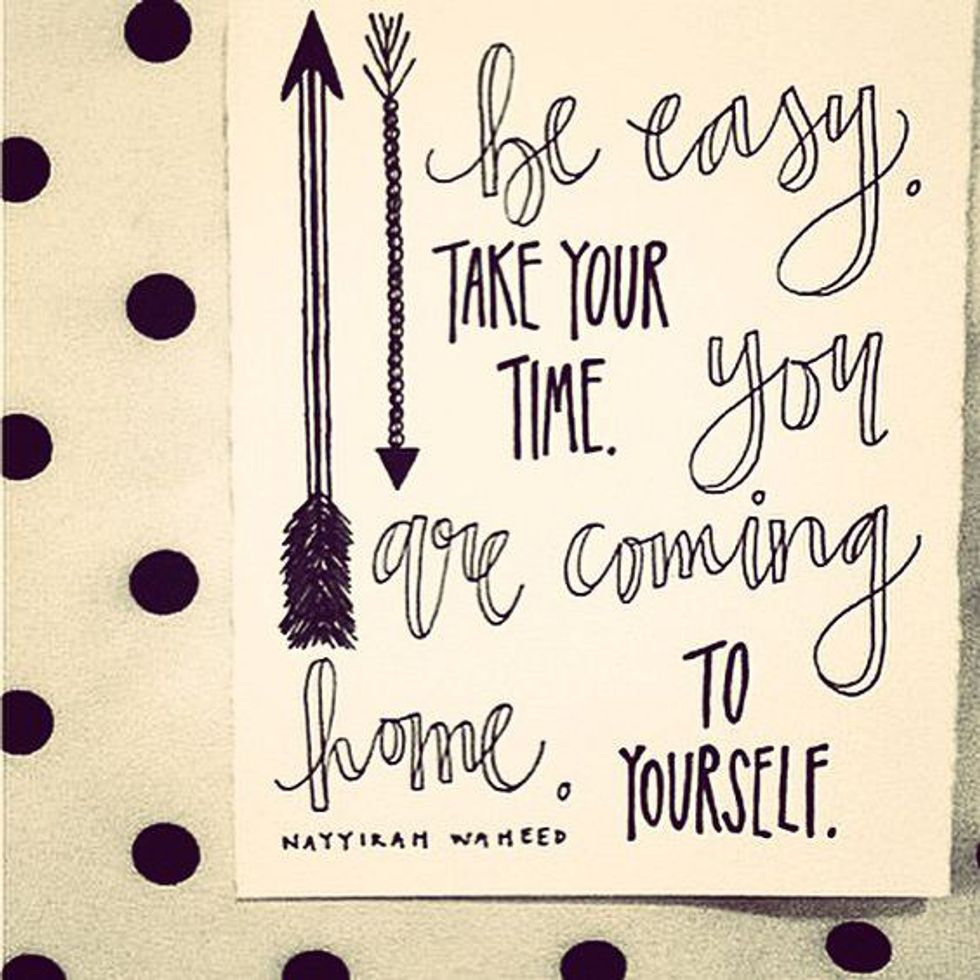 be easy.
TAKE YOUR
TIME.
you
are coming
home.
TO
YOURSELF.
NAYYIRAH WAHEED